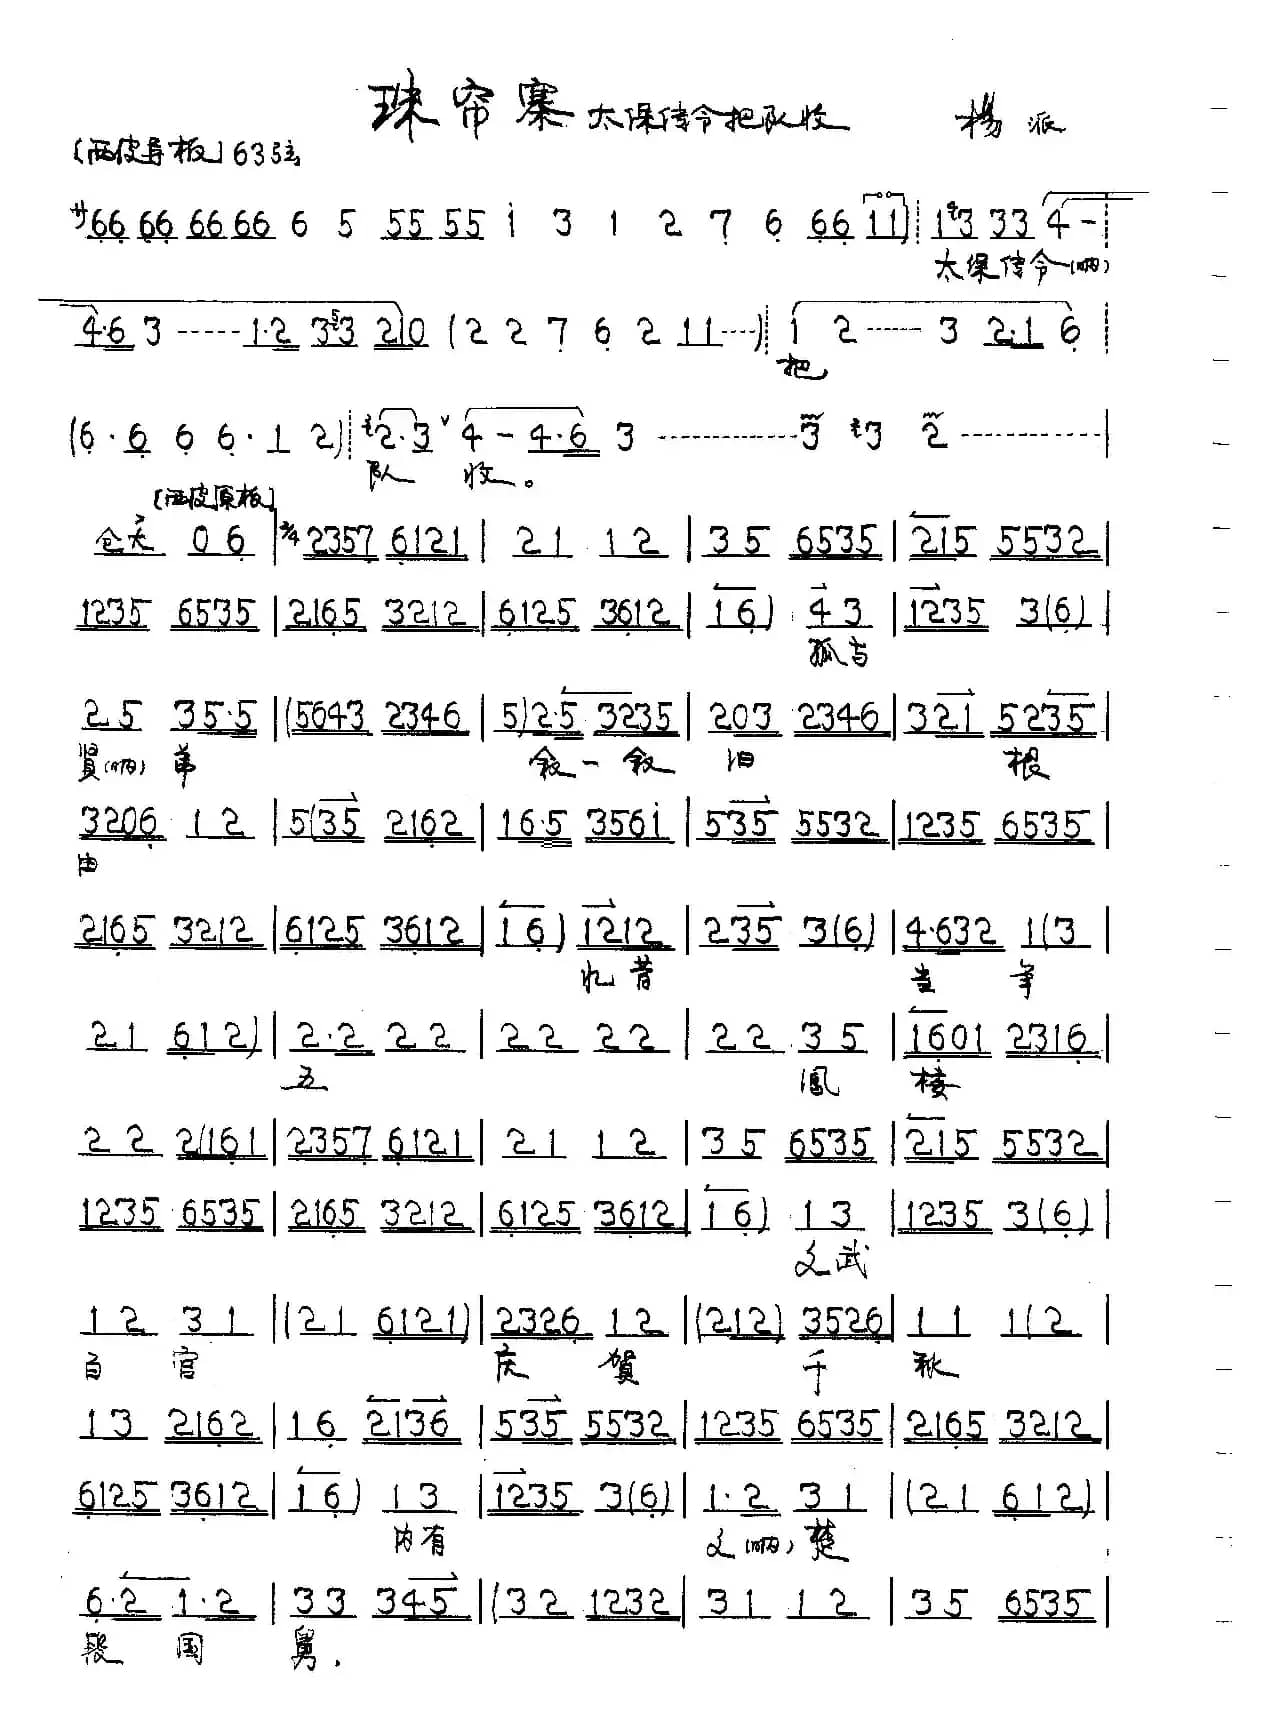 珠帘寨 太保传令把队收 杨派
〔西皮导板〕63弦
サ66 66 66 66 6 5 55 55 i 3 1 2 7 6 66 11) 1 3 33 4 -
太保传令(呐)
4·6 3 ----- 1·2 3 53 210 (2 2 7 6 2 11 ----) 1 2 ---- 3 2·1 6
把
(6· 6 6 6· 1 2) 2·3 ∨ 4 - 4·6 3 ---------- 3 3 2 ----------
队 收。
〔西皮原板〕
仓大 06 | 2/4 2357 6121 | 21 12 | 35 6535 | 215 5532 |
1235 6535 | 2165 3212 | 6125 3612 | 16) 43 | 1235 3(6) |
孤与
25 35·5 | (5643 2346 | 5)2·5 3235 | 203 2346 | 321 5235 |
贤(呐)弟 叙一叙 旧 根
3206 12 | 5(35 2162 | 16·5 356i | 535 5532 | 1235 6535 |
由
2165 3212 | 6125 3612 | 16) 1212 | 235 3(6) | 4·632 1(3 |
忆昔 当年
21 612) | 2·2 22 | 22 22 | 22 35 | 1601 2316 |
五 凤 楼
22 2(161 | 2357 6121 | 21 12 | 35 6535 | 215 5532 |
1235 6535 | 2165 3212 | 6125 3612 | 16) 13 | 1235 3(6) |
文武
12 31 | (21 6121) | 2326 12 | (212) 3526 | 11 1(2 |
百官 庆贺 千秋
13 2162 | 16 2136 | 535 5532 | 1235 6535 | 2165 3212 |
6125 3612 | 16) 13 | 1235 3(6) | 1·2 31 | (21 612) |
内有 文(呐)楚
6·2 1·2 | 33 345 | (32 1232 | 31 12 | 35 6535
段国舅,